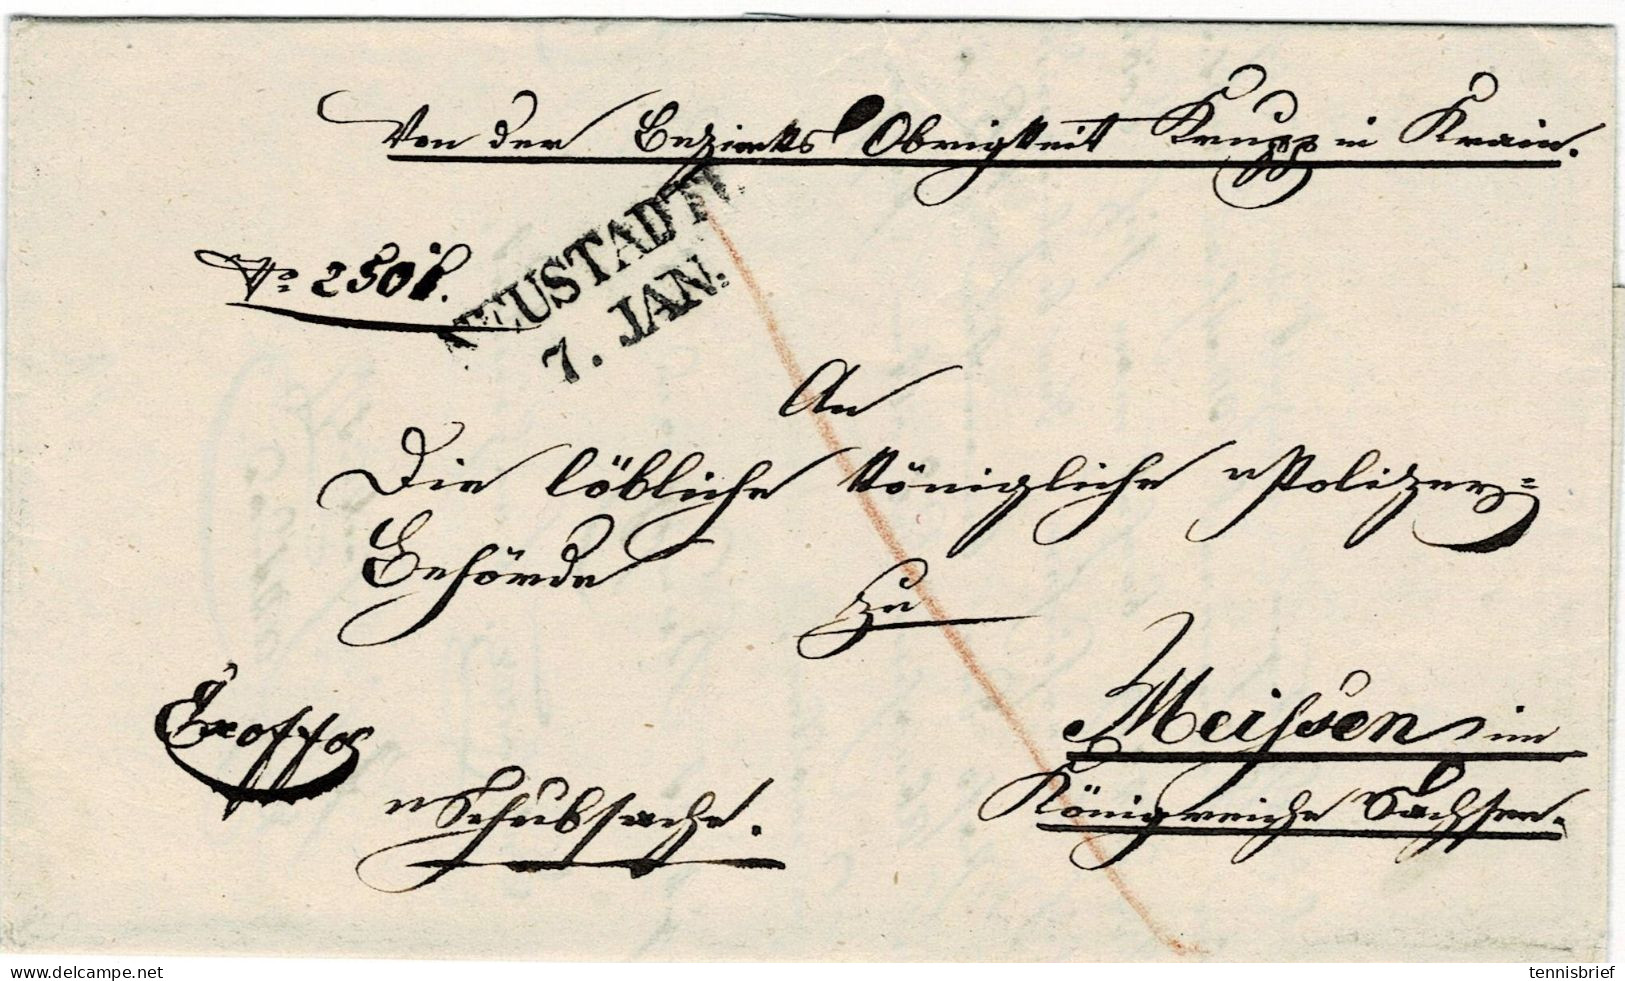 Von der Bezirks Obrigkeit Krupp in Krain.
No 2501.
NEUSTADTL.
7. JAN.
An
Die löbliche Königliche Polizey=
Behörde
zu
Meissen im
Königreiche Sachsen.
Ex offo
Schubsache.
delcampe.net
tennisbrief